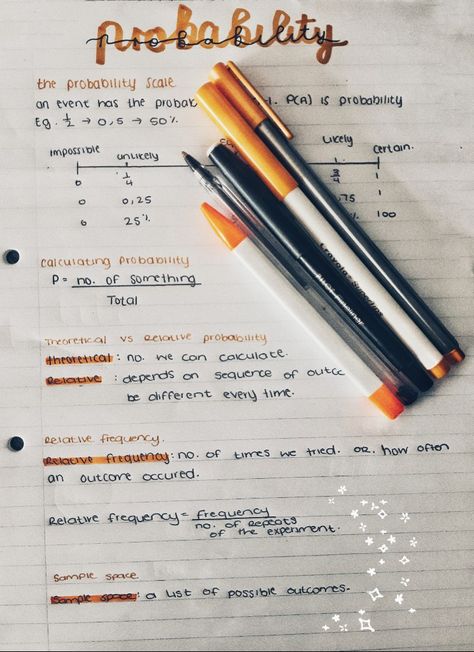 probability
probability
the probability scale
an event has the probab 1. P(A) is probability
Eg. ½ → 0,5 → 50%.
impossible unlikely Likely Certain.
0 ¼ ¾ 1
0 0,25 ,75 1
0 25% % 100
Calculating probability
P = no. of something
Total
Theoretical vs Relative probability
Theoretical : no. we can calculate.
Relative : depends on sequence of outco
be different every time.
Relative frequency.
Relative frequency: no. of times we tried. OR. how often
an outcome occured.
Relative frequency = frequency
no. of repeats
of the experiment.
Sample space
Sample space : a list of possible outcomes.
Crayola Supertips